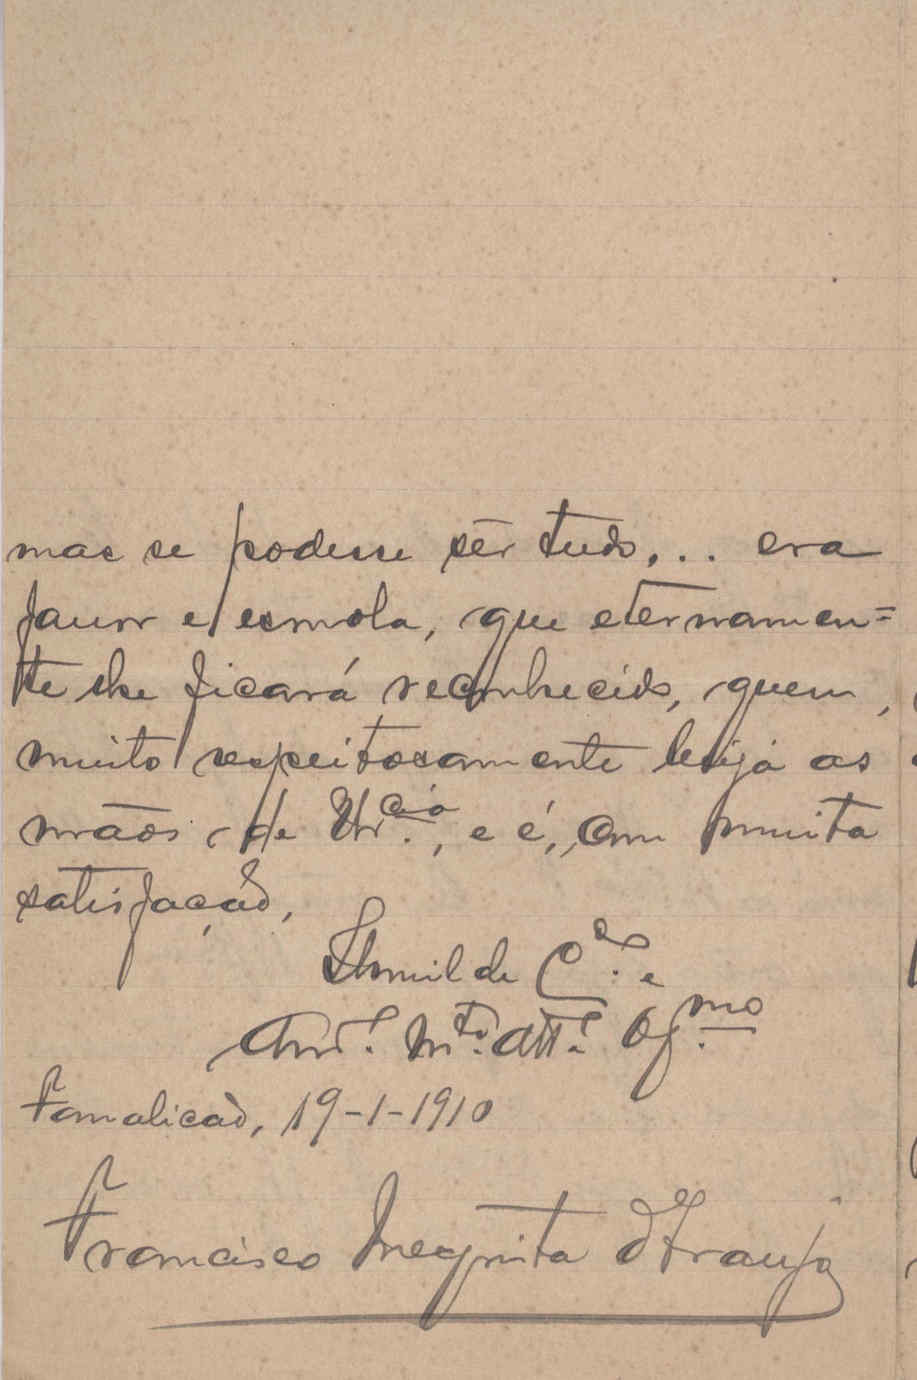 mas se podesse sêr tudo,... era
favor e esmola, que eternamen=
te lhe ficará reconhecido, quem,
muito respeitosamente beija as
mãos de V. Ex.cia, e é, com muita
satisfação,
Humilde C.do e
Am.º M.to att.º Obg.mo
Famalicão, 19-1-1910
Francisco Mesquita d'Araujo